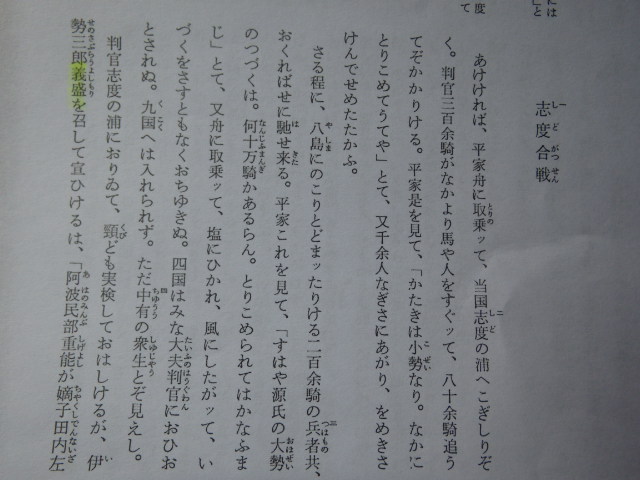 には
」と
度
て
志度合戦
あけければ、平家舟に取乗ッて、当国志度の浦へこぎしりぞ
く。判官三百余騎がなかより馬や人をすぐッて、八十余騎追う
てぞかかりける。平家是を見て、「かたきは小勢なり。なかに
とりこめてうてや」とて、又千余人なぎさにあがり、をめきさ
けんでせめたたかふ。
さる程に、八島にのこりとどまッたりける二百余騎の兵者共、
おくればせに馳せ来る。平家これを見て、「すはや源氏の大勢
のつづくは。何十万騎かあるらん。とりこめられてはかなふま
じ」とて、又舟に取乗ッて、塩にひかれ、風にしたがッて、い
づくをさすともなくおちゆきぬ。四国はみな大夫判官におひお
とされぬ。九国へは入れられず。ただ中有の衆生とぞ見えし。
判官志度の浦におりゐて、頸ども実検しておはしけるが、伊
勢三郎義盛を召して宣ひけるは、「阿波民部重能が嫡子田内左